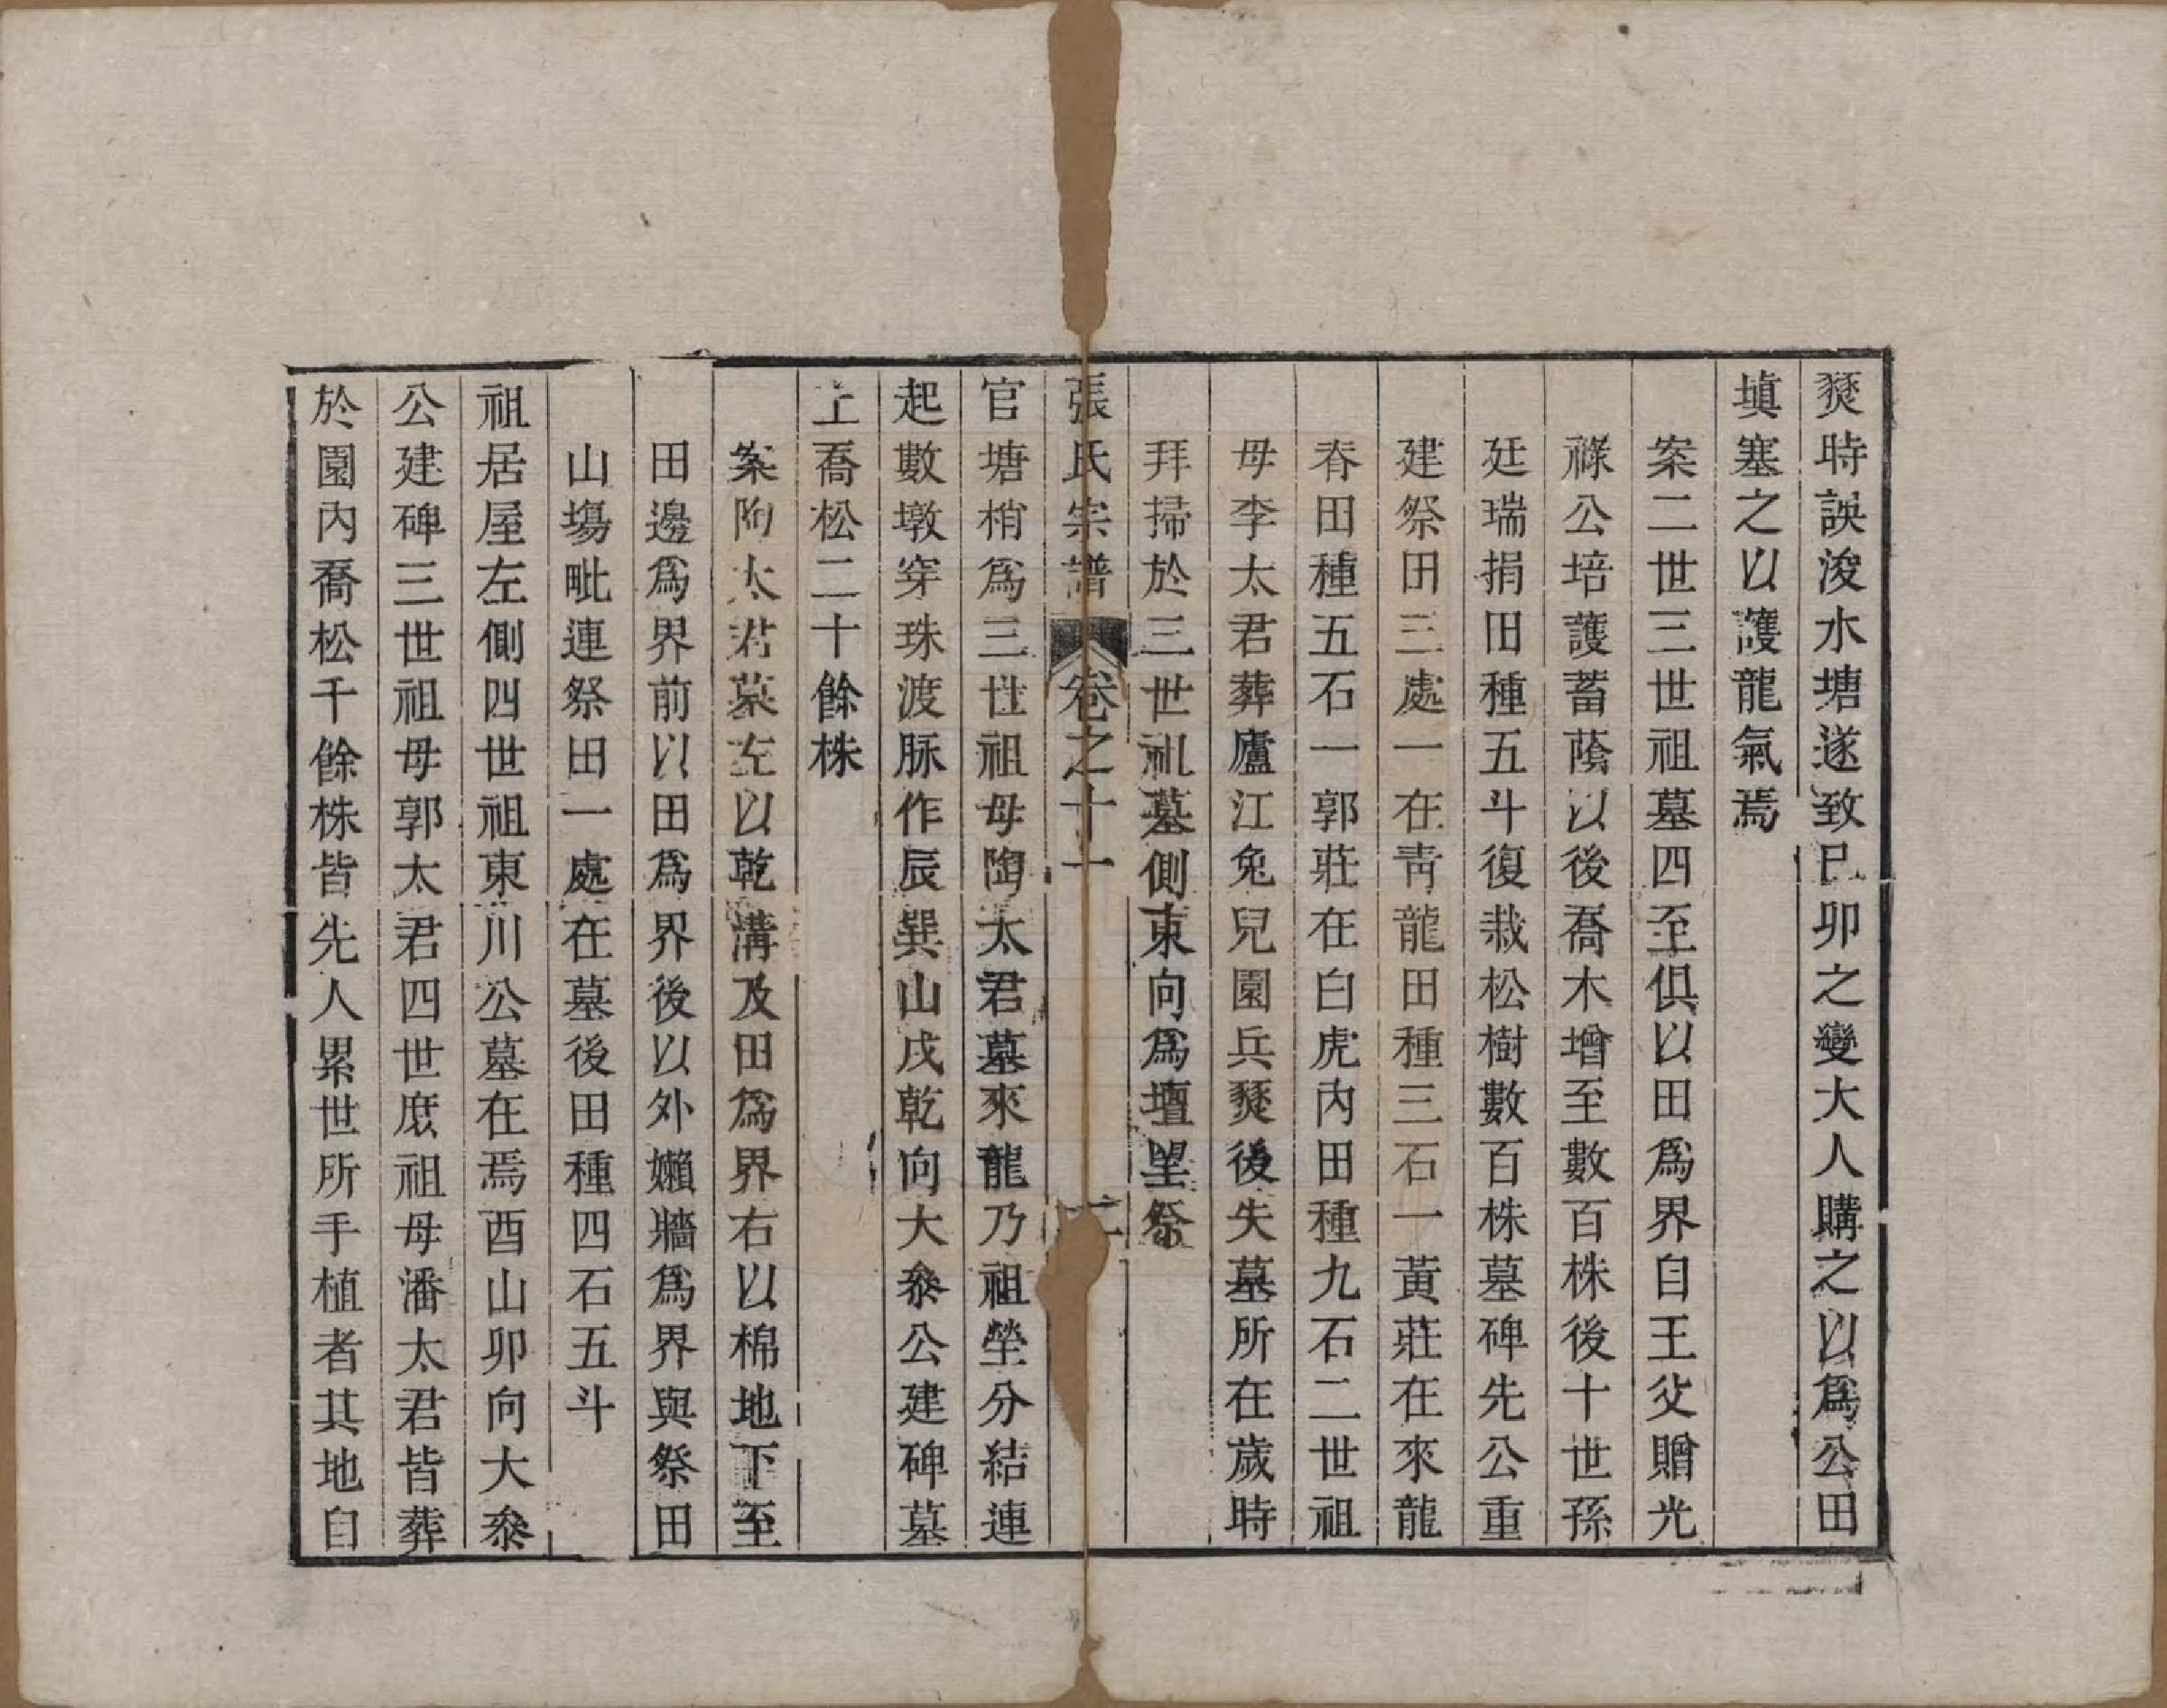 燹時誤浚水塘遂致巳卯之變大人購之以爲公田
塡塞之以護龍氣焉
案二世三世祖墓四至俱以田爲界自王父贈光
祿公培護蓄蔭以後喬木增至數百株後十世孫
廷瑞捐田種五斗復栽松樹數百株墓碑先公重
建祭田三處一在靑龍田種三石一黃莊在來龍
脊田種五石一郭莊在白虎內田種九石二世祖
母李太君葬廬江兔兒園兵燹後失墓所在歲時
拜掃於三世祖墓側東向爲壇望祭
張氏宗譜 卷之十一 二
官塘梢爲三世祖母陶太君墓來龍乃祖塋分結連
起數墩穿珠渡脉作辰巽山戌乾向大叅公建碑墓
上喬松二十餘株
案陶太君墓左以乾溝及田爲界右以棉地下至
田邊爲界前以田爲界後以外嬾牆爲界與祭田
山塲毗連祭田一處在墓後田種四石五斗
祖居屋左側四世祖東川公墓在焉酉山卯向大叅
公建碑三世祖母郭太君四世庶祖母潘太君皆葬
於園內喬松千餘株皆先人累世所手植者其地自